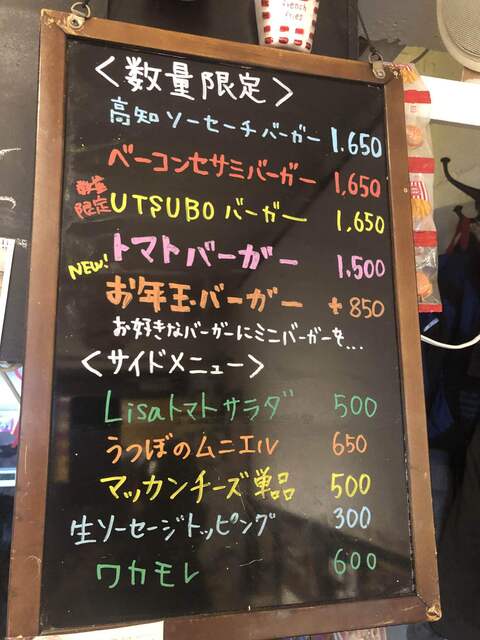 French
Fries
<数量限定>
高知ソーセーチバーガー 1.650
ベーコンセサミバーガー 1,650
数量限定 UTSUBOバーガー 1,650
NEW! トマトバーガー 1.500
お年玉バーガー +850
お好きなバーガーにミニバーガーを...
<サイドメニュー>
Lisaトマトサラダ 500
うつぼのムニエル 650
マッカンチーズ単品 500
生ソーセージトッピング 300
ワカモレ 600